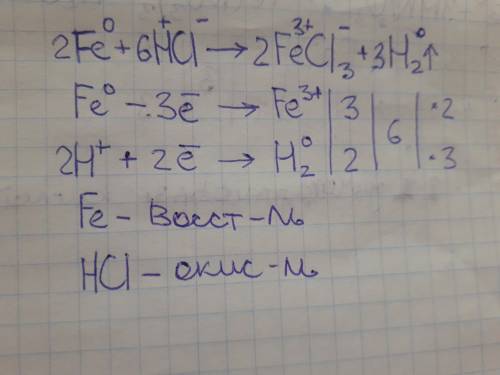 2Fe⁰ + 6H⁺Cl⁻ → 2Fe³⁺Cl₃⁻ + 3H₂⁰↑
Fe⁰ - 3e̅ → Fe³⁺ | 3 | 6 | ·2
2H⁺ + 2e̅ → H₂⁰ | 2 | | ·3
Fe - Восст-ль
HCl - окис-ль